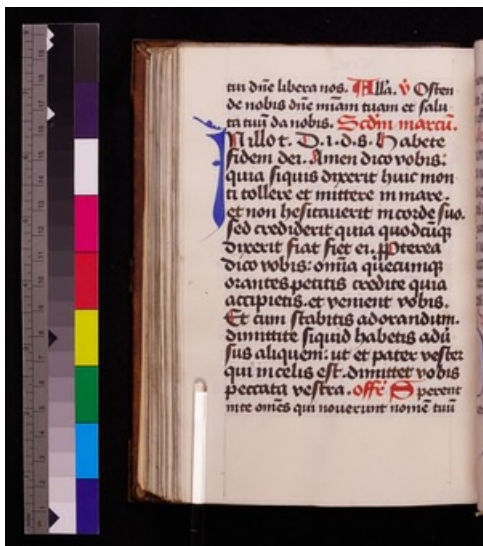 tui dn̄e libera nos. All'a. v̄ Osten
de nobis dn̄e mīam tuam et salu
ta tuū da nobis. Scdm̄ marcū.
In illo t. D. i. d. s. Habete
fidem dei. Amen dico vobis:
quia siquis dixerit huic mon
ti tollere et mittere in mare.
et non hesitauerit in corde suo.
sed crediderit quia quodcūq;
dixerit fiat fiet ei. ꝓpterea
dico vobis: om̄ia quecumq;
orantes petitis credite quia
accipietis. et venient vobis.
Et cum stabitis adorandum.
dimittite siquid habetis adū
sus aliquem: ut et pater vester
qui in celis est. dimittet vobis
peccata vestra. offē Sperent
in te om̄es qui nouerunt nomē tuū